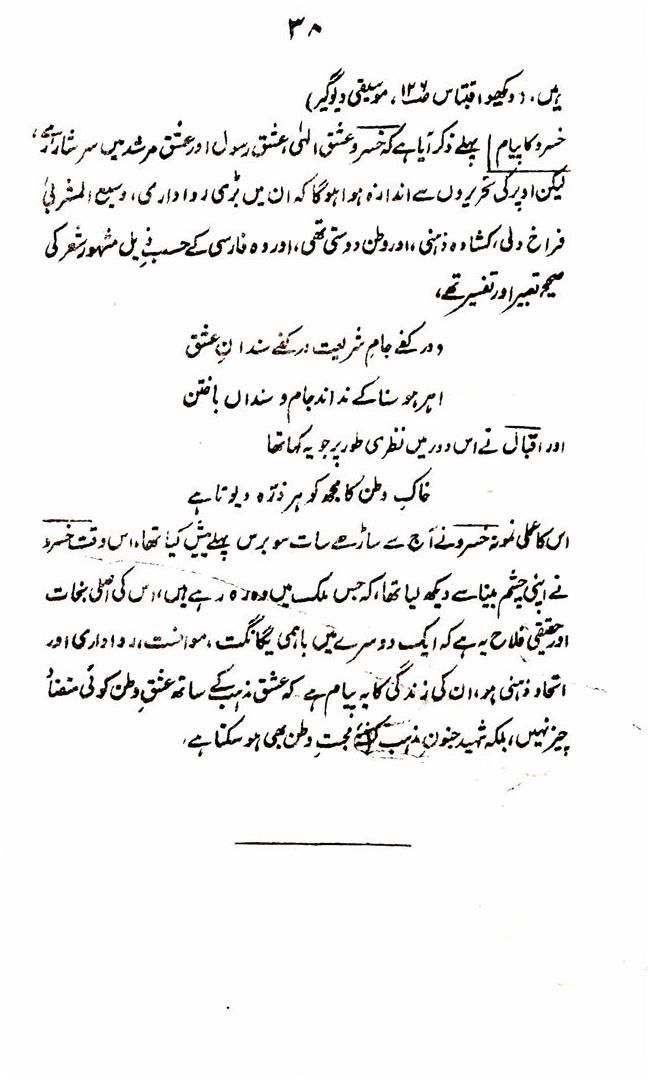 ۳۸
ہیں، (دیکھو اقتباس ص۱۲۶، موسیقی دیوگیر)
خسرو کا پیام | پہلے ذکر آیا ہے کہ خسرو عشق الٰہی، عشق رسول اور عشق مرشد میں سرشار رہے،
لیکن اوپر کی تحریروں سے اندازہ ہوا ہوگا کہ ان میں بڑی رواداری، وسیع المشربی
فراخ دلی، کشادہ ذہنی، اور وطن دوستی تھی، اور وہ فارسی کے حسب ذیل مشہور شعر کی
صحیح تعبیر اور تفسیر تھے،
در کفے جامِ شریعت در کفے سندانِ عشق
ہر ہوسناکے نداند جام و سنداں باختن
اور اقبال نے اس دور میں نظری طور پر جو یہ کہا تھا
خاکِ وطن کا مجھ کو ہر ذرّہ دیوتا ہے
اس کا عملی نمونہ خسرو نے آج سے ساڑھے سات سو برس پہلے پیش کیا تھا، اس وقت خسرو
نے اپنی چشم بینا سے دیکھ لیا تھا، کہ جس ملک میں وہ رہ رہے ہیں، اس کی اصلی نجات
اور حقیقی فلاح یہ ہے کہ ایک دوسرے میں باہمی یگانگت، موانست، رواداری اور
اتحاد ذہنی ہو، ان کی زندگی کا یہ پیام ہے کہ عشق مذہب کے ساتھ عشق وطن کوئی متضاد
چیز نہیں، بلکہ شہید جنونِ مذہب کشتۂ محبت وطن بھی ہو سکتا ہے،